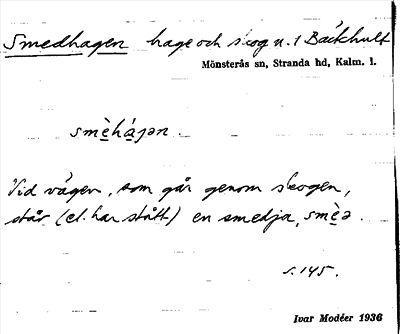 Smedhagen hage och skog u. 1 Bäckhult
Mönsterås sn, Stranda hd, Kalm. l.
smèhágən.
Vid vägen, som går genom skogen,
står (el. har stått) en smedja, smèə.
s. 145.
Ivar Modéer 1936